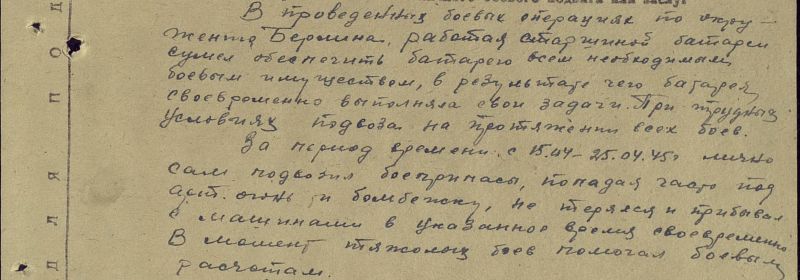 В проведенных боевых операциях по окру-
жению Берлина, работая старшиной батареи
сумел обеспечить батарею всем необходимым
боевым имуществом, в результате чего батарея
своевременно выполняла свои задачи. При трудных
условиях подвоза на протяжении всех боев.
За период времени с 15.04 - 25.04.45г лично
сам подвозил боеприпасы, попадая часто под
арт. огонь и бомбежку, не терялся и прибывал
с машинами в указанное время своевременно
В момент тяжолых боев помогал боевым
расчотам.
ДЛЯ ПОД